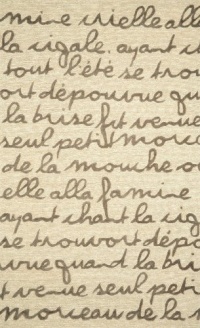 mine crielle alle
la cigale, ayant ch
tout l'été se trou
ort dépourvue qu
la brise fut venue
seul petit morce
de la mouche ou
elle alla famine
ayant chant la cig
se trouvort dépo
vue quand la bri
t venue seul peti
morceau de la m